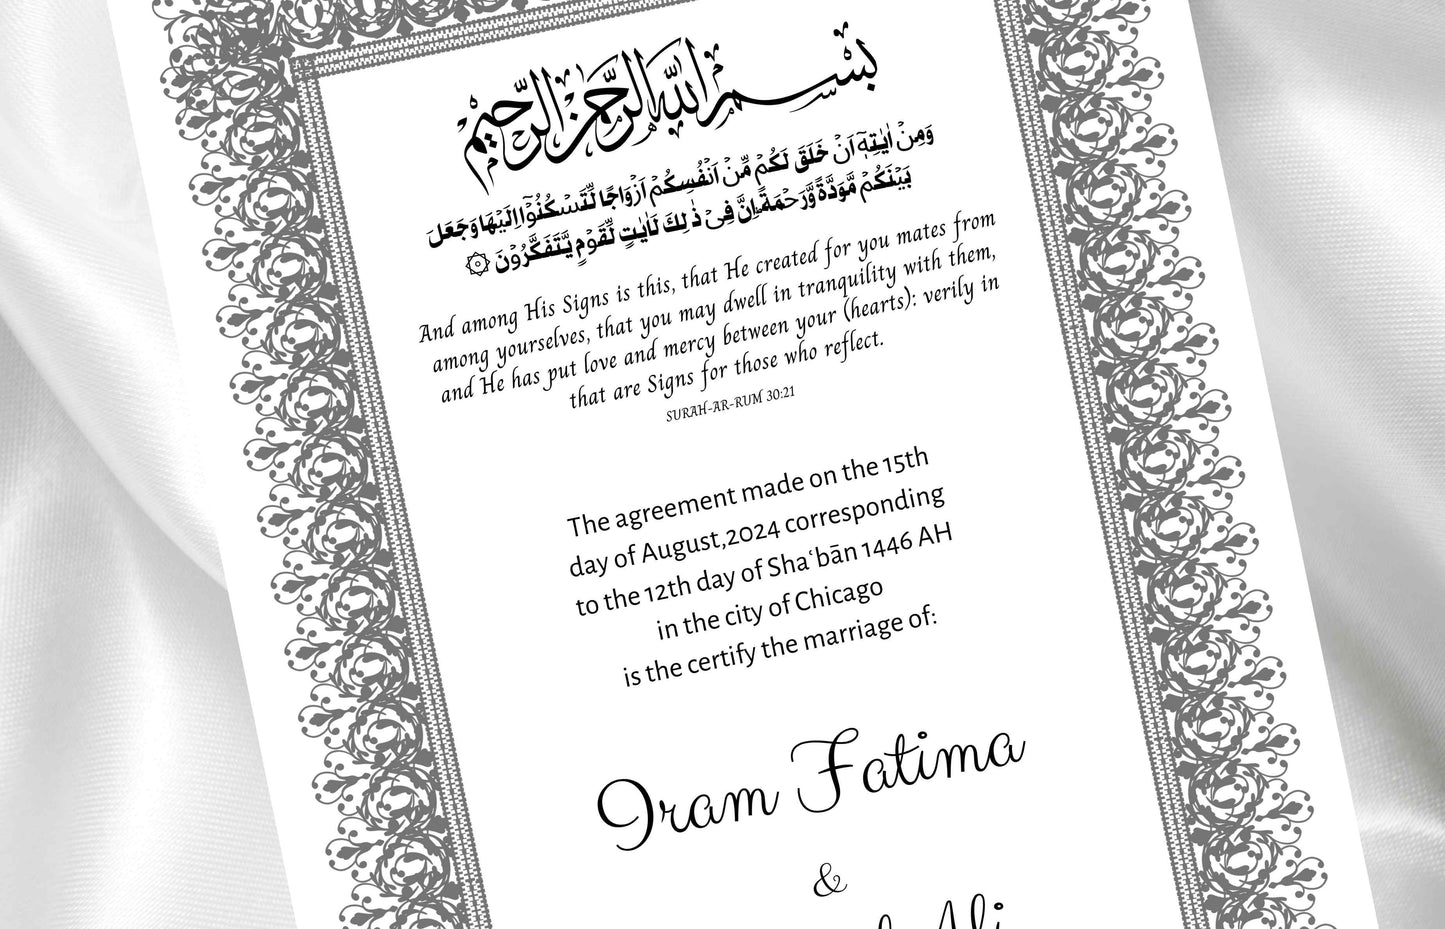 بِسْمِ اللهِ الرَّحْمٰنِ الرَّحِيْمِ
وَمِنْ اٰيٰتِهٖٓ اَنْ خَلَقَ لَكُمْ مِّنْ اَنْفُسِكُمْ اَزْوَاجًا لِّتَسْكُنُوْٓا اِلَيْهَا وَجَعَلَ
بَيْنَكُمْ مَّوَدَّةً وَّرَحْمَةً ۗاِنَّ فِيْ ذٰلِكَ لَاٰيٰتٍ لِّقَوْمٍ يَّتَفَكَّرُوْنَ ۞
And among His Signs is this, that He created for you mates from
among yourselves, that you may dwell in tranquility with them,
and He has put love and mercy between your (hearts): verily in
that are Signs for those who reflect.
SURAH-AR-RUM 30:21
The agreement made on the 15th
day of August,2024 corresponding
to the 12th day of Shaʿbān 1446 AH
in the city of Chicago
is the certify the marriage of:
Iram Fatima
&
Ali